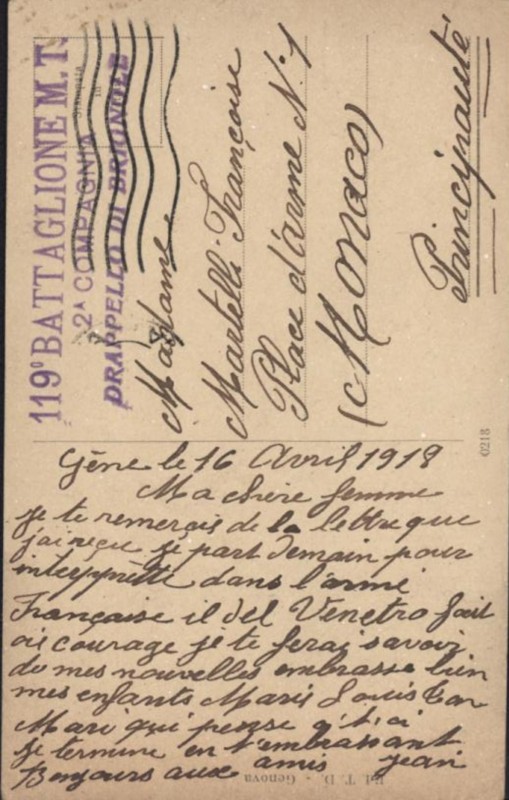 119º BATTAGLIONE M.T.
2ª COMPAGNIA
DRAPPELLO DI BRIGNOLE
Stampata
Madame
Martelli Françoise
Place d'arme N.º 1
(Monaco)
Principauté
0218
Gêne le 16 Avril 1918
Ma chère femme
je te remercis de la lettre que
jai reçu je part demain pour
interpprètte dans l'armé
Française il del Venetro fait
ois courage je te ferai savoir
de mes nouvelles embrasse bien
mes enfants Maris Louis ton
Mari qui pense a t'oi
je termine en t'embrassant
Bonjours aux amis Jean
Ed. T. D. - Genova